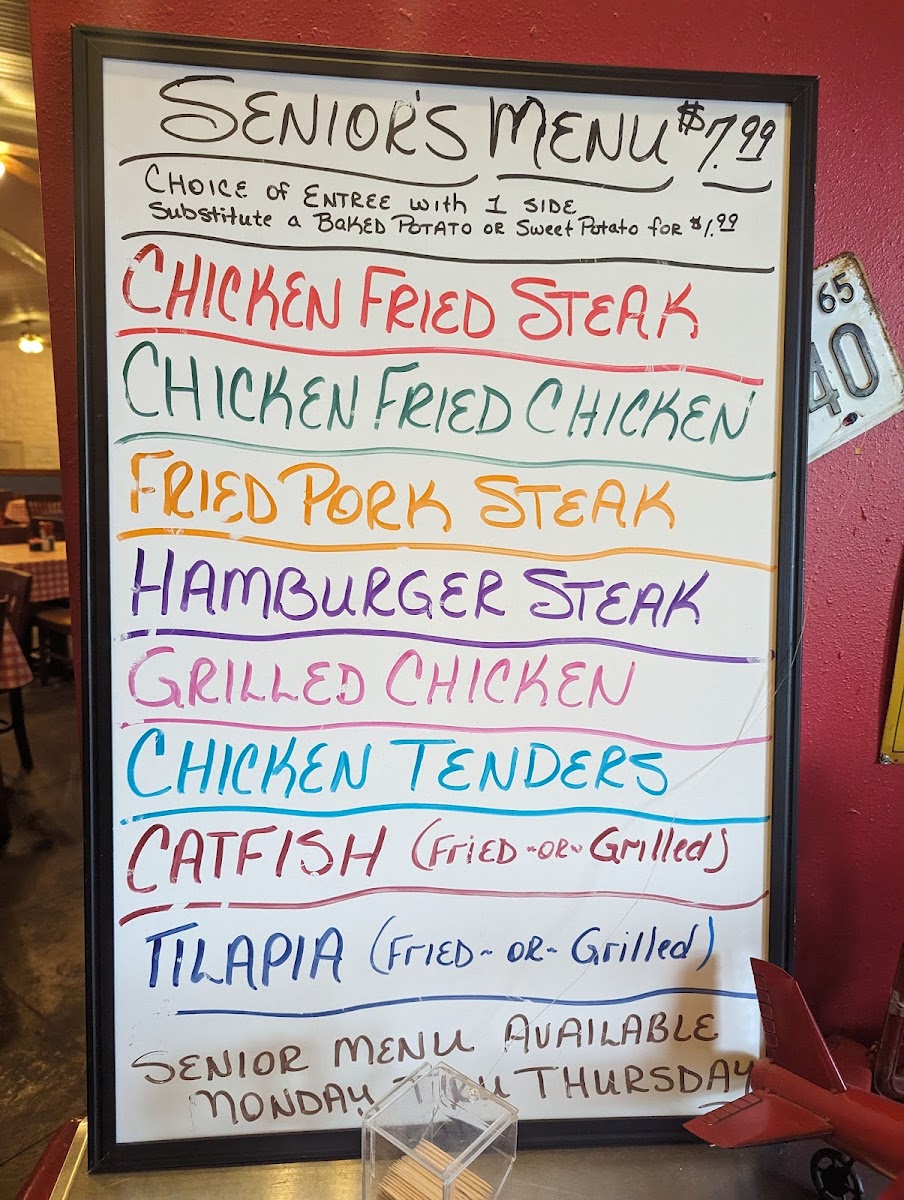 SENIOR'S MENU $7.99
CHOICE of ENTREE with 1 SIDE
Substitute a BAKED POTATO OR Sweet Potato for $1.99
CHICKEN FRIED STEAK
CHICKEN FRIED CHICKEN
FRIED PORK STEAK
HAMBURGER STEAK
GRILLED CHICKEN
CHICKEN TENDERS
CATFISH (FRIED -OR- Grilled)
TILAPIA (FRIED - OR - Grilled)
SENIOR MENU AVAILABLE
MONDAY THRU THURSDAY
65
40